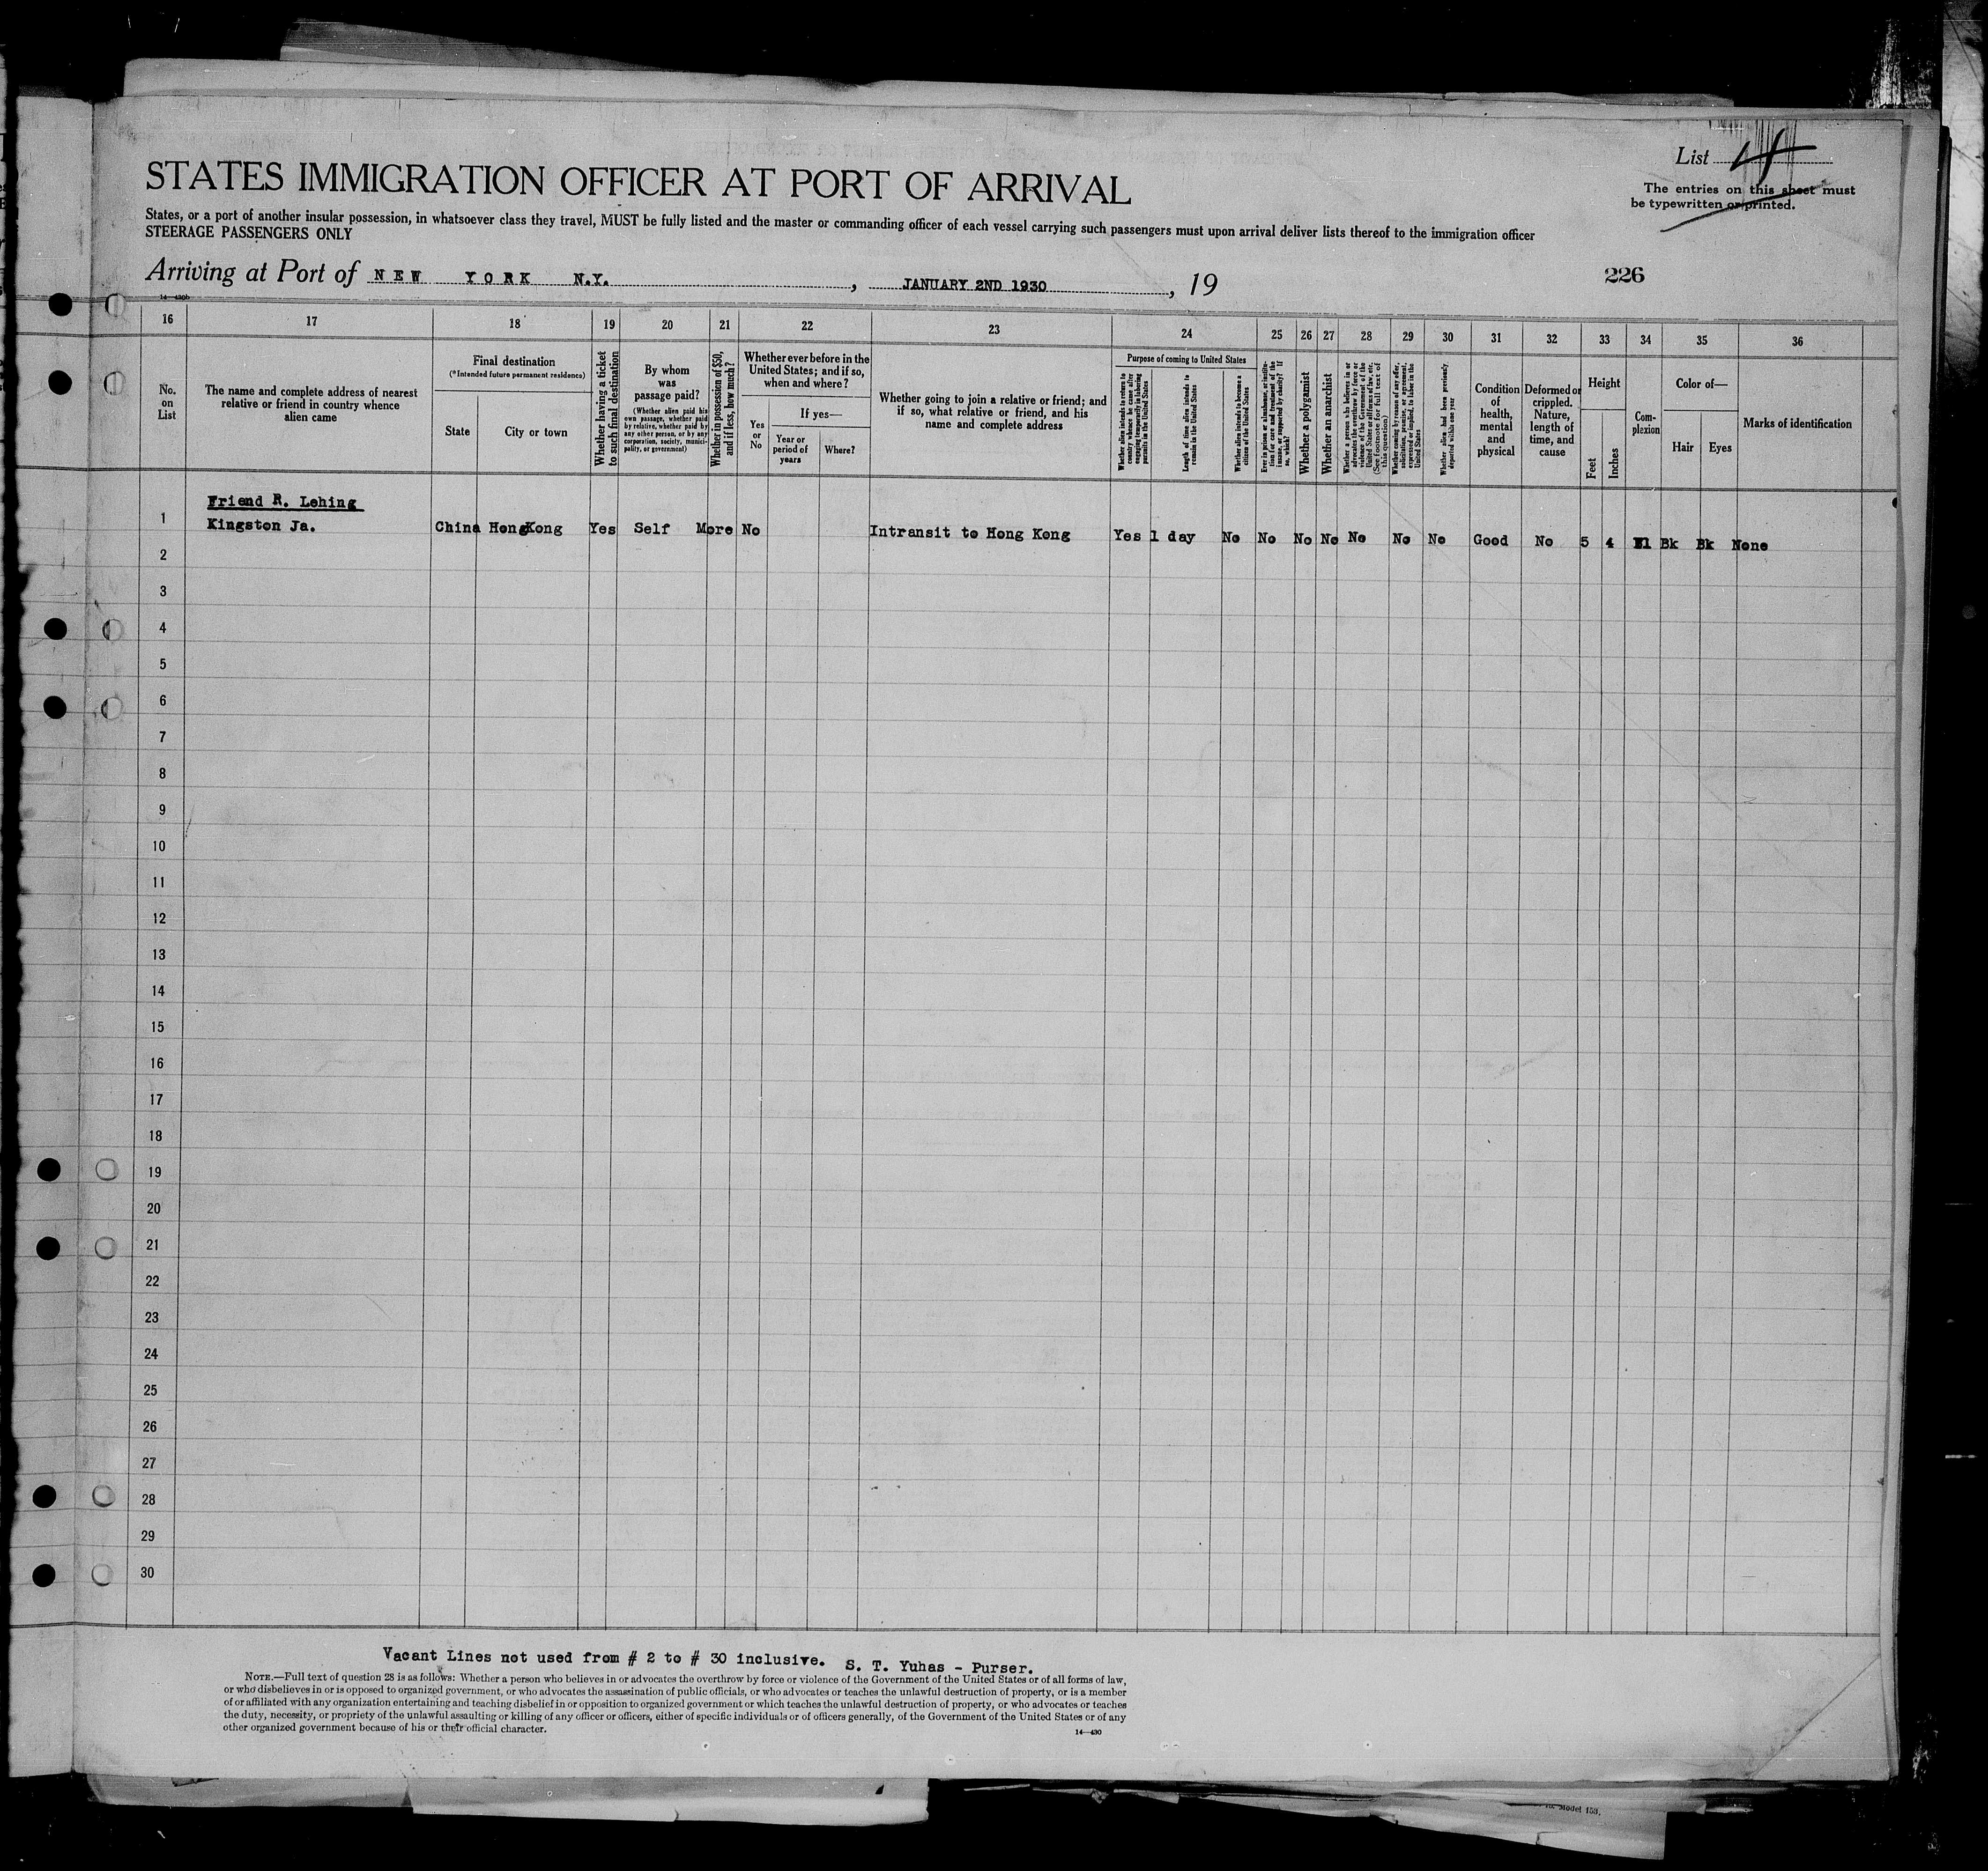 List 4
STATES IMMIGRATION OFFICER AT PORT OF ARRIVAL
The entries on this sheet must
be typewritten or printed.
States, or a port of another insular possession, in whatsoever class they travel, MUST be fully listed and the master or commanding officer of each vessel carrying such passengers must upon arrival deliver lists thereof to the immigration officer
STEERAGE PASSENGERS ONLY
Arriving at Port of NEW YORK N.Y. , JANUARY 2ND 1930 , 19
226
14—430b
16 17 18 19 20 21 22 23 24 25 26 27 28 29 30 31 32 33 34 35 36
No. on List
The name and complete address of nearest relative or friend in country whence alien came
Final destination
(*Intended future permanent residence)
State
City or town
Whether having a ticket to such final destination
By whom was passage paid?
(Whether alien paid his own passage, whether paid by relative, whether paid by any other person, or by any corporation, society, municipality, or government)
Whether in possession of $50, and if less, how much?
Whether ever before in the United States; and if so, when and where?
Yes or No
If yes—
Year or period of years
Where?
Whether going to join a relative or friend; and if so, what relative or friend, and his name and complete address
Purpose of coming to United States
Whether alien intends to return to country whence he came after engaging temporarily in laboring pursuits in the United States
Length of time alien intends to remain in the United States
Whether alien intends to become a citizen of the United States
Ever in prison or almshouse, or institution for care and treatment of the insane, or supported by charity? If so, which?
Whether a polygamist
Whether an anarchist
Whether a person who believes in or advocates the overthrow by force or violence of the Government of the United States or all forms of law, etc. (See footnote for full text of this question)
Whether coming by reason of any offer, solicitation, promise, or agreement, expressed or implied, to labor in the United States
Whether alien had been previously deported within one year
Condition of health, mental and physical
Deformed or crippled. Nature, length of time, and cause
Height
Feet
Inches
Complexion
Color of—
Hair
Eyes
Marks of identification
Friend R. Lehing
1 Kingston Ja. China HongKong Yes Self More No Intransit to Hong Kong Yes 1 day No No No No No No No Good No 5 4 Bk Bk None
2
3
4
5
6
7
8
9
10
11
12
13
14
15
16
17
18
19
20
21
22
23
24
25
26
27
28
29
30
Vacant Lines not used from # 2 to # 30 inclusive. S. T. Yuhas - Purser.
NOTE.—Full text of question 28 is as follows: Whether a person who believes in or advocates the overthrow by force or violence of the Government of the United States or of all forms of law,
or who disbelieves in or is opposed to organized government, or who advocates the assassination of public officials, or who advocates or teaches the unlawful destruction of property, or is a member
of or affiliated with any organization entertaining and teaching disbelief in or opposition to organized government or which teaches the unlawful destruction of property, or who advocates or teaches
the duty, necessity, or propriety of the unlawful assaulting or killing of any officer or officers, either of specific individuals or of officers generally, of the Government of the United States or of any
other organized government because of his or their official character.
14—430
Model 153.